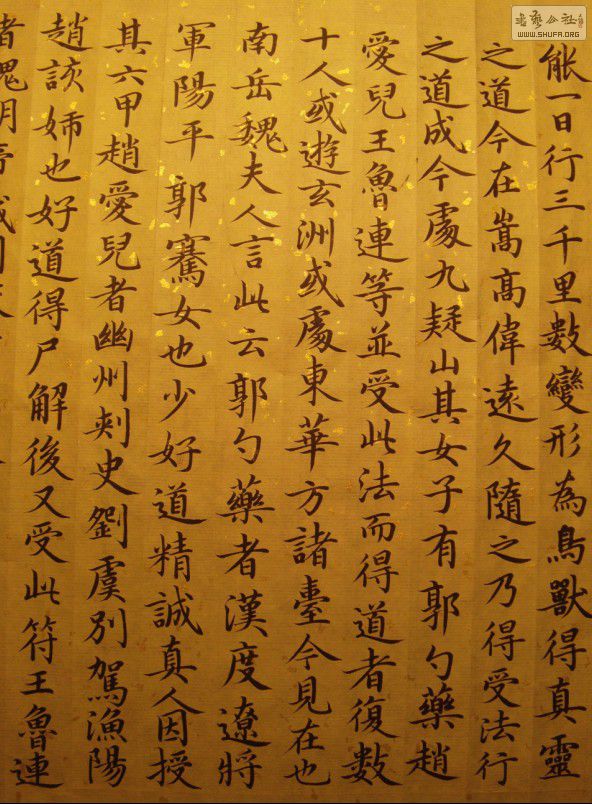 能一日行三千里數變形為鳥獸得真靈
之道今在嵩高偉遠久隨之乃得受法行
之道成今處九疑山其女子有郭勺藥趙
愛兒王魯連等並受此法而得道者復數
十人或遊玄洲或處東華方諸臺今見在也
南岳魏夫人言此云郭勺藥者漢度遼將
軍陽平郭騫女也少好道精誠真人因授
其六甲趙愛兒者幽州刺史劉虞別駕漁陽
趙該姊也好道得尸解後又受此符王魯連
者魏明帝城門
WWW.SHUFA.ORG